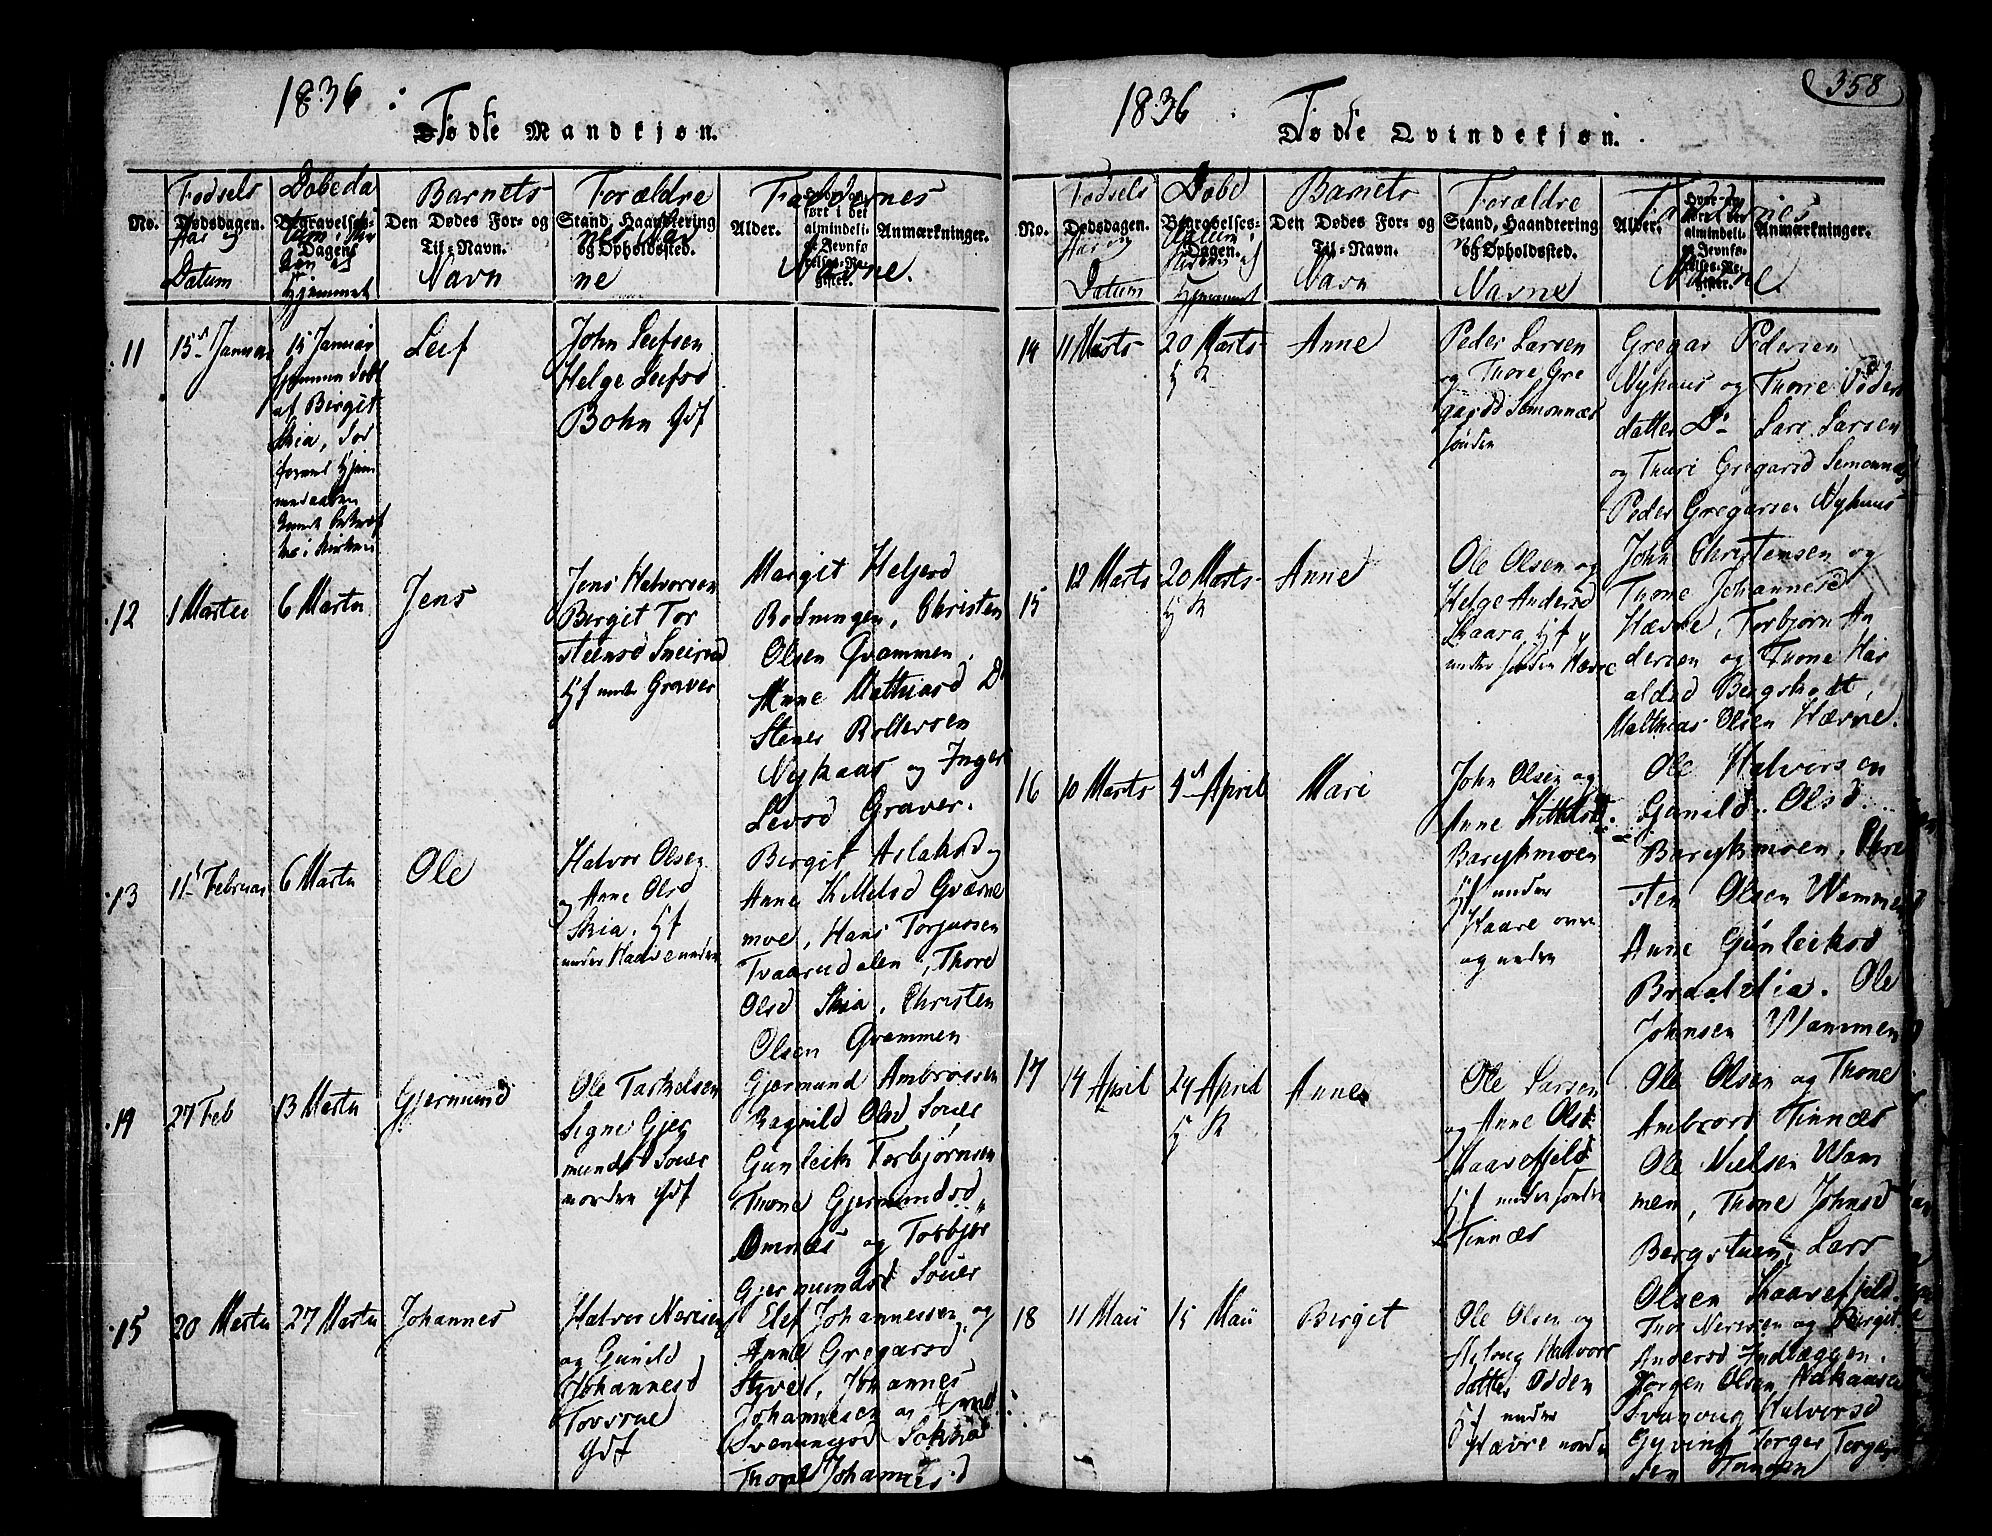 1836
Fødte Mandkjøn.
No.
Fødsels
Dødsdagen.
Aar og
Datum
Døbeda
Begravelses-
Dagen.
Hjemmet
Barnets
Den Dødes For- og
Til-Navn.
Navn
Forældre
Stand, Haandtering
og Opholdssted.
ne
Faddernes
Alder.
Anmærkninger.
Navne.
11
15 Januar
15 Januar
hjemmedøbt
af Birgit
Skia,
Leif
John Leifsen
Helge Leifsd
Bohn Gdf
12
1 Martii
6 Martii
Jens
Jens Halvorsen
Birgit Tor
steensd Sneirud
Hf under Graver
Margit Heljesd
Rodningen, Christen
Olsen Qvammen
Anne Mathiasd Do
Stener Rollefsen
Nykaas og Inger
Levsd Graver.
13
11 Februar
6 Martii
Ole
Halvor Olsen
og Anne Olsd
Skia, Hf
Birgit Aslaksd og
Anne Kittelsd Gværne
moe, Hans Torjussen
Tvaarudalen, Thore
Olsd Skia, Christen
Olsen Qvammen
14
27 Feb
13 Martii
Gjermund
Ole Tarkelsen
Signe Gjer
munds Soner
norden Gdf
Gjermund Ambrossen
Ragnild Olsd Soner
Gunleik Torbjørnsen
Thone Gjermundsd
Omnæs og Torbjør
Gjermundsd Soner
15
20 Martii
27 Martii
Johannes
Halvor Nerisen
og Gunild
Johannesd
Tovsrue
Gdf
Elef Johannessen og
Anne Gregarsd
Styver, Johannes
Johannesen og Anne
Svenungsd
Thone Johannesd
358
1836
Fødte Qvindekjøn.
No.
Fødsels
Dødsdagen.
Aar og
Datum
Døbe
Begravelses-
Dagen.
Hjemmet
Barnets
Den Dødes For- og
Til-Navn.
Navn
Forældre
Stand, Haandtering
og Opholdssted.
Navne
Faddernes
Alder.
Anmærkninger.
Navne
14
11 Marts
20 Marts
H K
Anne
Peder Larsen
og Thore Gre
garsd Semonnæs
sønden
Gregar Pedersen
Nyhuus og Thone Peders
datter Do Lars Larsen
og Thuri Gregarsd Semonnæs
Peder Gregarsen Nyhuus
15
12 Marts
20 Marts
H K
Anne
Ole Olsen og
Helge Andersd
Skaara, Hf
under sønden Hævre
John Christensen og
Thone Johannesd
Hævre, Torbjørn An
dersen og Thone Har
aldsd Bergskodt,
Mathias Olsen Hævre.
16
10 Marts
4 April
Mari
John Olsen og
Anne Kittelsd
Barykmoen
Hf under
Haare oven
og neden
Ole Halvorsen
Gunild Olsd
Barykmoen, Chri
sten Olsen Wammen
Anne Gunleiksd
Bradalslia. Ole
Johnsen Wammen
17
14 April
24 April
H K
Anne
Ole Larsen
og Anne Olsd
Haavefjeld
Hf under sønden
Tinnæs
Ole Olsen og Thone
Ambrosd Tinnæs
Ole Nielsen Wam
men, Thone Johnsd
Bergstuen, Lars
Olsen Haavefjeld.
18
11 Maii
15 Maii
Birgit
Ole Olsen og
Hyloug Halvors
datter Odden
Hf under
Hævre norden
Thor Nerisen og Birgit
Andersd Indlæggen.
Jorgen Olsen Nakaasa
Svanoug Halvorsd
Gyving Torger Torger
sen Tangen